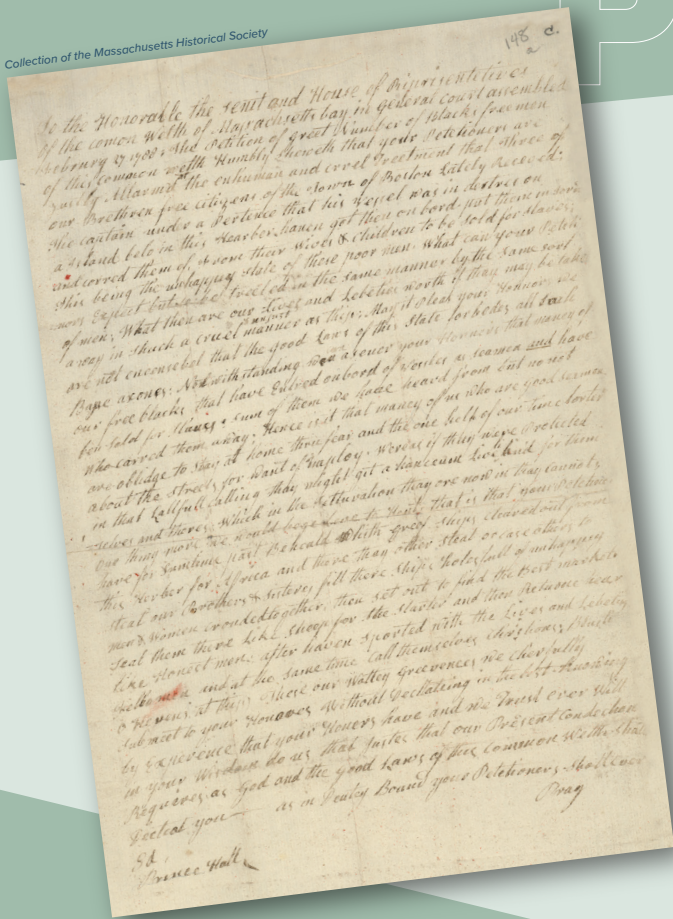 Collection of the Massachusetts Historical Society
148 C.
a
To the Honorable the Senit and House of Riprisentetives
of the comon Welth of Massachsetts bay in General Court assembled
February 27 1788: The Petition of greet Number of Blacks freemen
of this common welth Humbly sheweth that your Petetioners are
justly Allarmed at the enhuman and cruel Treetment that Three of
our Brethren free citizens of the Town of Boston lately Receved;
The captain under a Pertence that his vessel was in destres on
a Island belo in this Hearber haven got then on bord put them in irons
and corred them of, from their Wives & children to be sold for slaves;
This being the unhappy state of these poor men What can your Petetioners
expect but to be treeted in the same manner by the same sort
of men; What then are our lives and Lebeties worth if they may be taken
a way in shuch a cruel & unjust manner as this; May it pleas your Honnors, we
are not uncensebel that the good Laws of this State forbedes all such
Notwithstanding your Honners that maney of
our free blacks that have Entred onbord of vessles as seamen and have
ben sold for Slaves & sum of them we have heard from but no not
who carred them away; Hence is it that maney of us who are good seamen
are oblidge to stay at home thru fear and the one help of our time lorter
about the streets for want of employ; wereas if they were Protected
in that lallfull calling thay might get a hancsum livlihud for them
selves and theres: Which in the setturation thay are now in thay cannot;
One thing more we would bege leve to Hint, that is that your Petetioners
have for sumtime past Beheald whith greef ships cleared out from
this Herber for Africa and there than other steal or case others to
steal our Brothers & sisters fill there ships holes full of unhappy
men & women crouded together, then set out to find the Best markets
seal them there like sheep for the slarter and then Returne hear
like Honest men; after haven sported with the Lives and Lebeties
fello men and at the same time call themselves christions; Blush
o Hevens at this; These our Wattey greevences we cherfully
submeet to your Honores Without Decttating in the lest knowing
by Experence that your Honers have and we Trust ever will
in your Wisdom do us that Justes that our Present Condechon
Requires as God and the good Laws of this Common Welth shall
Dectat you — as in Deutey Bound your Petetioners shall ever
Pray
Sd
Prince Hall